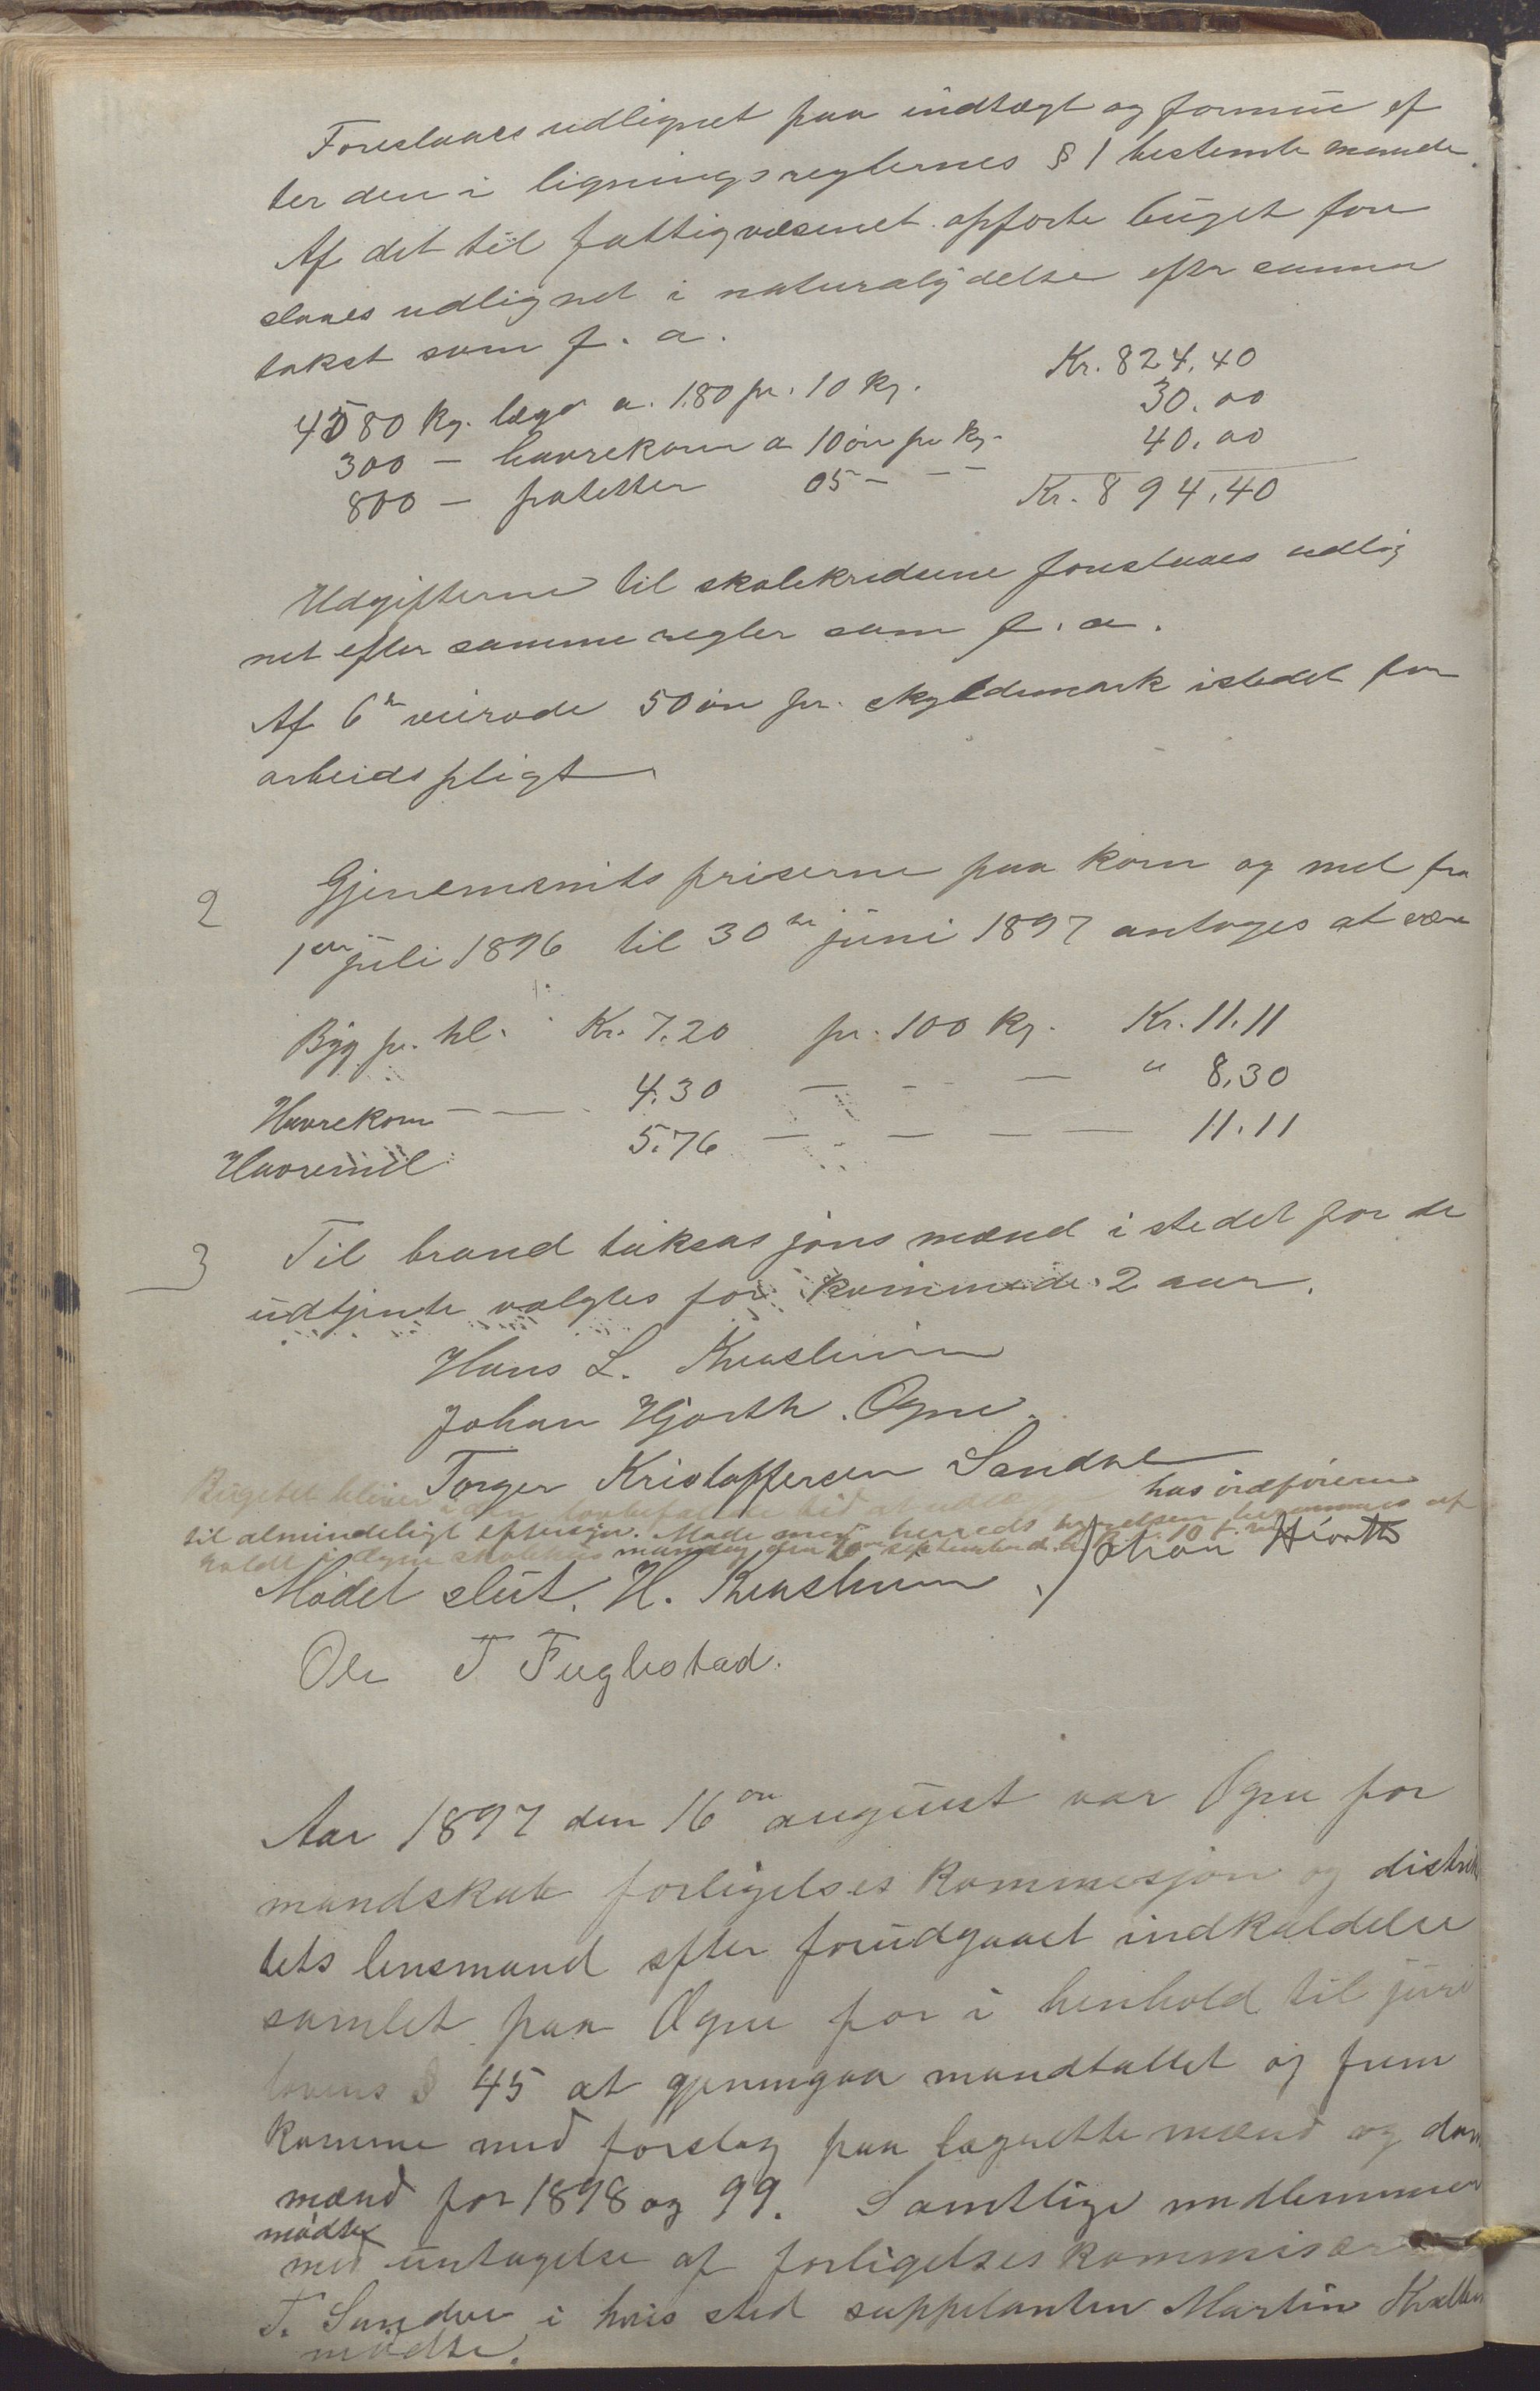 Foreslaaes udlignet paa indtægt og formue ef
ter den i ligningsreglernes § 1 bestemte maade.
Af det til fattigvæsenet opførte buget fore
slaaes udlignet i naturalydelse efter samme
takst som f. a.
4580 kg. lægd a. 1.80 pr. 10 kg. Kr. 824.40
300 — havrekorn a 10 øre pr kg. 30.00
800 — potetter 05 — — — 40.00
Kr. 894.40
Udgifterne til skolekredsene foreslaaes udlig
net efter samme regler som f. a.
Af 6te veirode 50 øre pr. skyldmark istedet for
arbeidspligt
2 Gjenemsnitspriserne paa korn og mel fra
1ste juli 1896 til 30te juni 1897 antoges at være
Byg pr. hl. Kr. 7.20 pr. 100 kg. Kr. 11.11
Havrekorn — — 4.30 — — — " 8.30
Havremel 5.76 — — — — 11.11
3 Til brandtaksasjonsmænd istedet for de
udtjente valgtes for kommende 2 aar.
Hans L.
Johan Hjorth. Ogne.
Torger Kristoffersen Sandve
Bugettet bliver i den lovbefalede tid at udlægge hos ordføreren
til almindeligt eftersyn. Møde med herredsstyrelsen berammes af
holdt i Ogne skolehus mandag den 20de september d. a. kl. 10 f. m.
Mødet slut. H. Johan Hiorth
Ole T Fuglestad.
Aar 1897 den 16de august var Ogne for
mandskab forligelseskommesjon og distrik
tets lensmand efter forudgaaet indkaldelse
samlet paa Ogne for i henhold til juri
lovens § 45 at gjenmgaa mandtallet og frem
komme med forslag paa lagrettemænd og dom
mænd for 1898 og 99. Samtlige medlemmer
mødte
med untagelse af forligelseskommisær
T. Sandve i hvis sted suppelanten Martin
mødte.